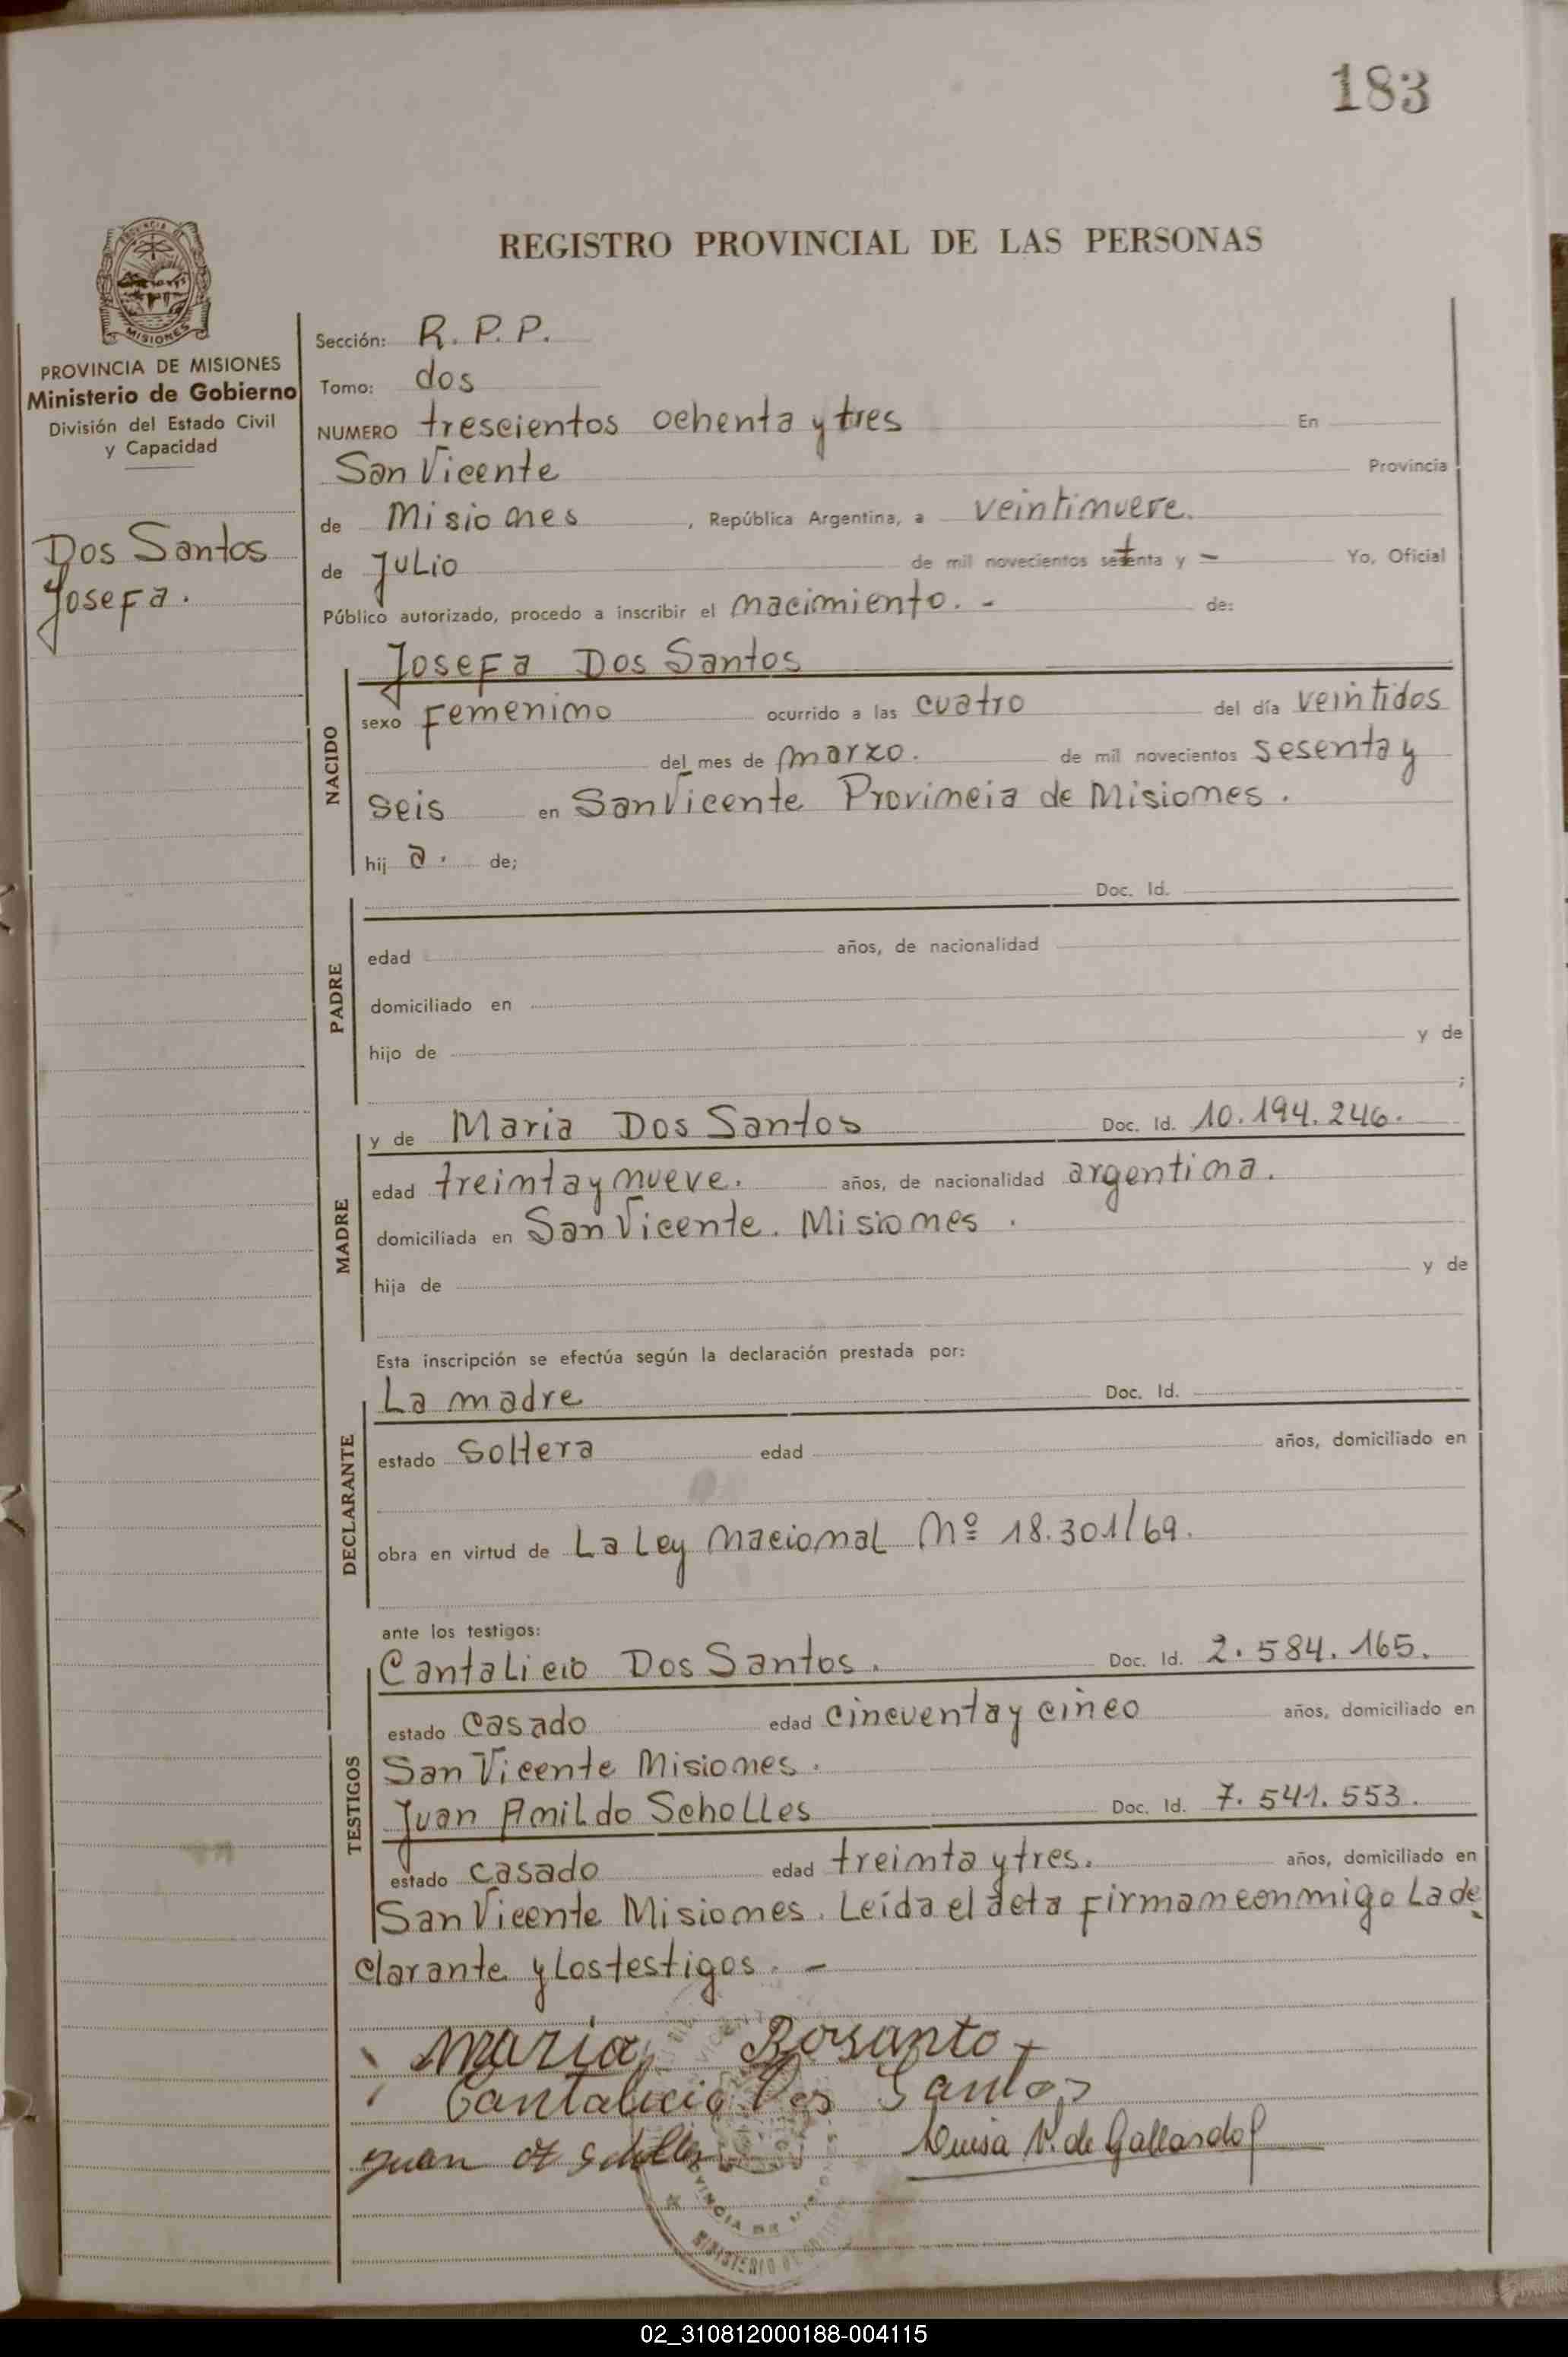 183
REGISTRO PROVINCIAL DE LAS PERSONAS
PROVINCIA DE
MISIONES
PROVINCIA DE MISIONES
Ministerio de Gobierno
División del Estado Civil
y Capacidad
Dos Santos
Josefa.
Sección: R. P. P.
Tomo: dos
NUMERO trescientos ochenta y tres En
San Vicente Provincia
de Misiones, República Argentina, a veintinueve.
de Julio de mil novecientos setenta y - Yo, Oficial
Público autorizado, procedo a inscribir el nacimiento. - de:
NACIDO
Josefa Dos Santos
sexo Femenino ocurrido a las cuatro del día veintidos
del mes de marzo. de mil novecientos sesenta y
seis en San Vicente Provincia de Misiones.
hij a. de;
PADRE
Doc. Id.
edad años, de nacionalidad
domiciliado en
hijo de y de
;
MADRE
y de Maria Dos Santos Doc. Id. 10.194.246.
edad treinta y nueve. años, de nacionalidad argentina.
domiciliada en San Vicente. Misiones.
hija de y de
Esta inscripción se efectúa según la declaración prestada por:
DECLARANTE
La madre Doc. Id.
estado soltera edad años, domiciliado en
obra en virtud de La Ley Nacional Nº 18.301/69.
ante los testigos:
TESTIGOS
Cantalicio Dos Santos. Doc. Id. 2.584.165.
estado casado edad cincuenta y cinco años, domiciliado en
San Vicente Misiones.
Juan Amildo Scholles Doc. Id. 7.541.553.
estado casado edad treinta y tres. años, domiciliado en
San Vicente Misiones. Leída el acta firman conmigo la de
clarante y los testigos. -
Maria Dosanto
Cantalicio Dos Santos
Juan A Scholles Luisa V. de Gallardo
VINCIA DE MI
MINISTERIO DE
02_310812000188-004115